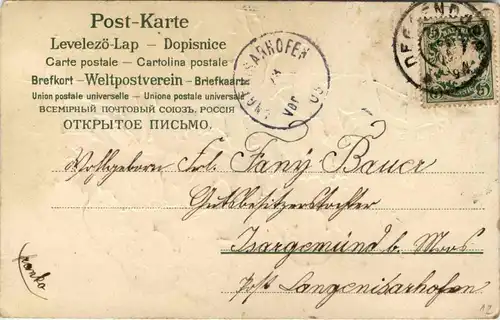 Post-Karte
Levelezö-Lap — Dopisnice
Carte postale — Cartolina postale
Brefkort - Weltpostverein - Briefkaart
Union postale universelle - Unione postale universale
ВСЕМІРНЫЙ ПОЧТОВЫЙ СОЮЗЪ, РОССІЯ
ОТКРЫТОЕ ПИСЬМО.
DEGGENDO
5
Wohlgeboren Frl. Fany Bauer
Gutsbesitzerstochter
Isargemünd b. Moos
Post Langenisarhofen
franko